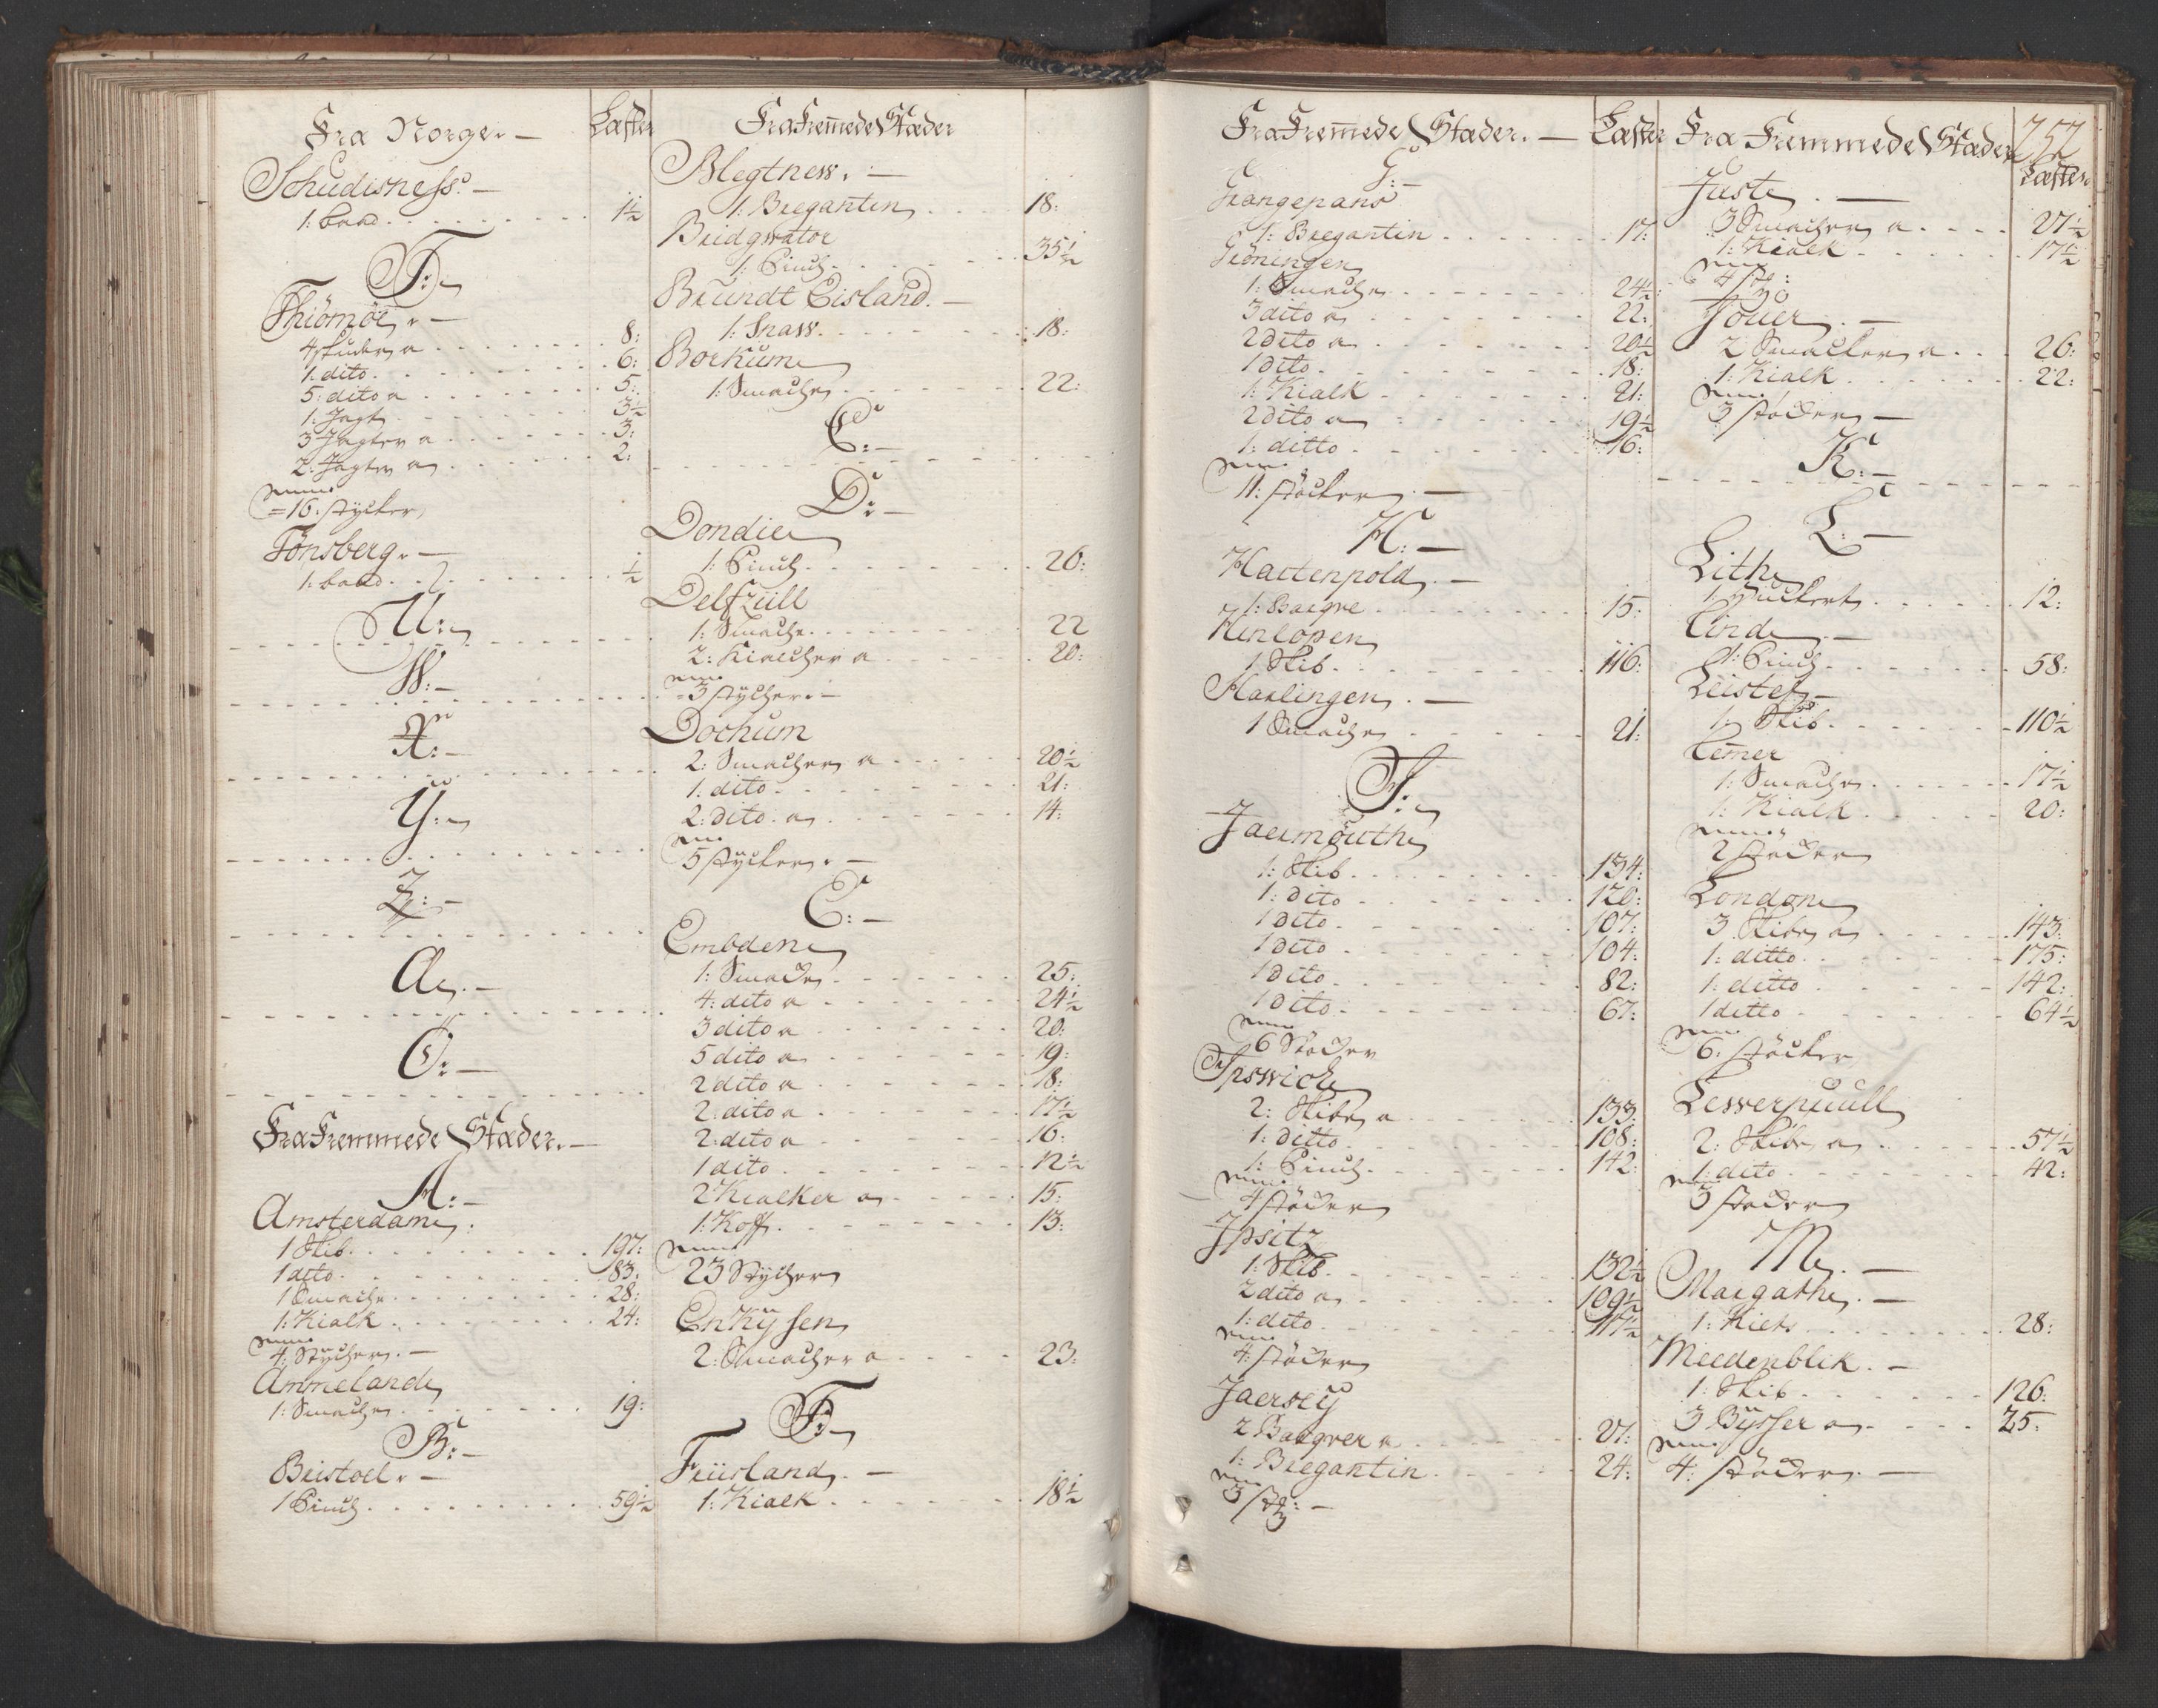 Fra Norge - Læster
Schudisness -
1: baad 1½
T:
Thiömöe -
4 skuder a 8:
1. dito 6:
5: dito a 5:
1: Jagt 3½
3 Jagter a 3:
2: Jagter a 2:
=16. stycker
Tönsberg -
1: baad ½
U:
W: -
X: -
Y:
Z: -
Æ. -
Ö: -
Fra Fremmede Stæder. -
A: -
Amsterdam.
1 Skib 197:
1 dito 83:
1 Smacke 28:
1: Kialk 24:
4: Stycker. -
Ammeland
1: Smacke 19:
B: -
Bristoel -
1 Pinch 59½
Fra Fremede Stæder
Blegtness. -
1: Bregantin 18:
Bridgwator
1: Pinch 35½
Brundt Eisland. -
1: Snaw 18:
Borkum
1: Smacke 22:
C: -
D: -
Dondie
1: Pinch 26:
Delfzüll
1: Smacke 22
2: Kialcker a 20:
=3 stycker -
Dochum
2: Smacker a 20½
1. dito 21:
2: dito a 14:
5 stycker -
E: -
Embden
1: Smacke 25:
4: dito a 24½
3 dito a 20:
5 dito a 19:
2 dito a 18:
2: dito a 17½
2: dito a 16:
1 dito 12½
2 Kialker a 15:
1: Koff 13:
23 Stycker
Enkysen
2: Smacker a 23:
F:
Friisland. -
1: Kialk 18½
Fra Fremede Stæder. - Læster
G: -
Grangepans
1: Bregantin 17:
Gröningen
1: Smacke 24½
3 dito a 22:
2 dito a 20½
1 dito 18:
1: Kialk 21:
2 dito a 19½
1: ditto 16:
11: stöcker -
H: -
Hartenpold. -
1: Barqve 15:
Hinlopen
1 Skib 116:
Harlingen. -
1 Smacke 21:
J:
Jaermouth
1: Skib 134:
1: dito 120:
1 dito 107:
1 dito 104:
1 dito 82:
1 dito 67:
6 Stöcker
Ipswich
2: Skibe a 133:
1: ditto 108:
1: Pinch 142:
4 stöcker
Ipsitz
1: Skib 132½
2 dito a 109½
1: dito 117½
4: stöcker
Jaersey
2 Barqver a 27:
1: Bregantin 24:
3 st: -
Fra Fremmede Stæder 252
Læster
Juste. -
3 Smacker a 27½
1: Kialk 17½
4 st:
Jouer. -
2 Smacker a 26:
1: Kialk 22:
3 stöcker -
K: -
L: -
Lith
1: Huckert 12:
Lind. -
1: Pinch 58:
Leistet -
1: Skib 110½
Lemer
1: Smacke 17½
1: Kialk 20:
2 stöcker
London
3 Skibe a 143:
1: ditto 175:
1: ditto 142:
1 ditto 64½
6: stöcker
Leswerpuull
2: Skibe a 57½
1: dito 42:
3 stöcker
M. -
Margathe. -
1: Kiets 28:
Meedenblik. -
1: Skib 126:
3 Bysser a 25:
4: stöcker -